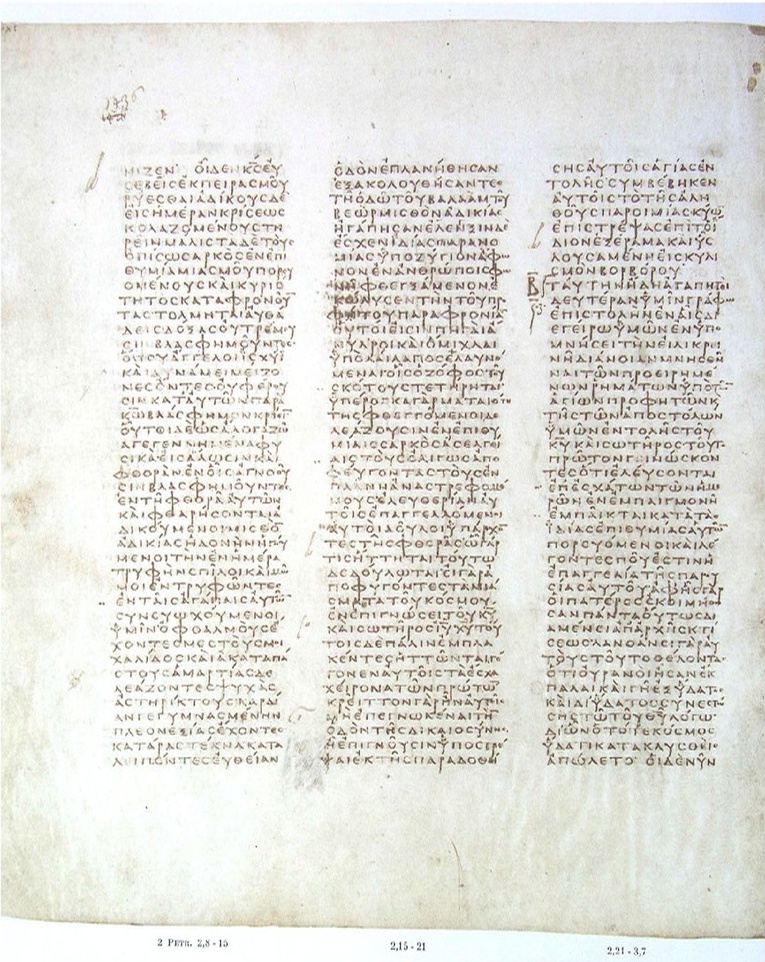 ΜΙΖΕΝ ΟΙΔΕΝΚϹΕΥ
ϹΕΒΕΙϹΕΚΠΕΙΡΑϹΜΟΥ
ΡΥΕϹΘΑΙΑΔΙΚΟΥϹΔΕ
ΕΙϹΗΜΕΡΑΝΚΡΙϹΕΩϹ
ΚΟΛΑΖΟΜΕΝΟΥϹΤΗ
ΡΕΙΝΜΑΛΙϹΤΑΔΕΤΟΥϹ
ΟΠΙϹΩϹΑΡΚΟϹΕΝΕΠΙ
ΘΥΜΙΑΜΙΑϹΜΟΥΠΟΡΕΥ
ΟΜΕΝΟΥϹΚΑΙΚΥΡΙΟ
ΤΗΤΟϹΚΑΤΑΦΡΟΝΟΥ
ΤΑϹΤΟΛΜΗΤΑΙΑΥΘΑ
ΔΕΙϹΔΟΞΑϹΟΥΤΡΕΜΟΥ
ϹΙΝΒΛΑϹΦΗΜΟΥΝΤΕϹ
ΟΠΟΥΑΓΓΕΛΟΙΙϹΧΥΙ
ΚΑΙΔΥΝΑΜΕΙΜΕΙΖΟ
ΝΕϹΟΝΤΕϹΟΥΦΕΡΟΥ
ϹΙΝΚΑΤΑΥΤΩΝΠΑΡΑ
ΚΩΒΛΑϹΦΗΜΟΝΚΡΙϹΙ
ΟΥΤΟΙΔΕΩϹΑΛΟΓΑΖΩ
ΑΓΕΓΕΝΝΗΜΕΝΑΦΥ
ϹΙΚΑΕΙϹΑΛΩϹΙΝΚΑΙ
ΦΘΟΡΑΝΕΝΟΙϹΑΓΝΟΟΥ
ϹΙΝΒΛΑϹΦΗΜΟΥΝΤΕϹ
ΕΝΤΗΦΘΟΡΑΑΥΤΩΝ
ΚΑΙΦΘΑΡΗϹΟΝΤΑΙΑ
ΔΙΚΟΥΜΕΝΟΙΜΙϹΘΟ
ΑΔΙΚΙΑϹΗΔΟΝΗΝΗΓΥ
ΜΕΝΟΙΤΗΝΕΝΗΜΕΡΑ
ΤΡΥΦΗΝϹΠΙΛΟΙΚΑΙΜΩ
ΜΟΙΕΝΤΡΥΦΩΝΤΕϹ
ΕΝΤΑΙϹΑΓΑΠΑΙϹΑΥΤΩ
ϹΥΝΕΥΩΧΟΥΜΕΝΟΙ
ΥΜΙΝΟΦΘΑΛΜΟΥϹΕ
ΧΟΝΤΕϹΜΕϹΤΟΥϹΜΟΙ
ΧΑΛΙΔΟϹΚΑΙΑΚΑΤΑΠΑ
ϹΤΟΥϹΑΜΑΡΤΙΑϹΔΕ
ΛΕΑΖΟΝΤΕϹΨΥΧΑϹ
ΑϹΤΗΡΙΚΤΟΥϹΚΑΡΔΙ
ΑΝΓΕΓΥΜΝΑϹΜΕΝΗΝ
ΠΛΕΟΝΕΞΙΑϹΕΧΟΝΤΕϹ
ΚΑΤΑΡΑϹΤΕΚΝΑΚΑΤΑ
ΛΕΙΠΟΝΤΕϹΕΥΘΕΙΑΝ
ΟΔΟΝΕΠΛΑΝΗΘΗϹΑΝ
ΕΞΑΚΟΛΟΥΘΗϹΑΝΤΕϹ
ΤΗΟΔΩΤΟΥΒΑΛΑΑΜΤΟΥ
ΒΕΩΡΜΙϹΘΟΝΑΔΙΚΙΑϹ
ΗΓΑΠΗϹΑΝΕΛΕΓΞΙΝΔΕ
ΕϹΧΕΝΙΔΙΑϹΠΑΡΑΝΟ
ΜΙΑϹΥΠΟΖΥΓΙΟΝΑΦΩ
ΝΟΝΕΝΑΝΘΡΩΠΟΙϹΦΩ
ΝΗΦΘΕΓΞΑΜΕΝΟΝΕ
ΚΩΛΥϹΕΝΤΗΝΤΟΥΠΡΟ
ΦΗΤΟΥΠΑΡΑΦΡΟΝΙΑ
ΟΥΤΟΙΕΙϹΙΝΠΗΓΑΙΑ
ΝΥΔΡΟΙΚΑΙΟΜΙΧΛΑΙ
ΥΠΟΛΑΙΛΑΠΟϹΕΛΑΥΝΟ
ΜΕΝΑΙΟΙϹΟΖΟΦΟϹΤΟΥ
ϹΚΟΤΟΥϹΤΕΤΗΡΗΤΑΙ
ΥΠΕΡΟΓΚΑΓΑΡΜΑΤΑΙΟΤΗ
ΤΗϹΦΘΕΓΓΟΜΕΝΟΙΔΕ
ΛΕΑΖΟΥϹΙΝΕΝΕΠΙΘΥ
ΜΙΑΙϹϹΑΡΚΟϹΑϹΕΛΓΕΙ
ΑΙϹΤΟΥϹΟΛΙΓΩϹΑΠΟ
ΦΕΥΓΟΝΤΑϹΤΟΥϹΕΝ
ΠΛΑΝΗΑΝΑϹΤΡΕΦΟΜΕ
ΝΟΥϹΕΛΕΥΘΕΡΙΑΝΑΥ
ΤΟΙϹΕΠΑΓΓΕΛΛΟΜΕΝΟΙ
ΑΥΤΟΙΔΟΥΛΟΙΥΠΑΡΧΟ
ΤΕϹΤΗϹΦΘΟΡΑϹΩΓΑΡ
ΤΙϹΗΤΤΗΤΑΙΤΟΥΤΩ
ΔΕΔΟΥΛΩΤΑΙΕΙΓΑΡΑ
ΠΟΦΥΓΟΝΤΕϹΤΑΜΙΑ
ϹΜΑΤΑΤΟΥΚΟϹΜΟΥ
ΕΝΕΠΙΓΝΩϹΕΙΤΟΥΚΥ
ΚΑΙϹΩΤΗΡΟϹΙΥΧΥΤΟΥ
ΤΟΙϹΔΕΠΑΛΙΝΕΜΠΛΑ
ΚΕΝΤΕϹΗΤΤΩΝΤΑΙΓΕ
ΓΟΝΕΝΑΥΤΟΙϹΤΑΕϹΧΑ
ΧΕΙΡΟΝΑΤΩΝΠΡΩΤΩ
ΚΡΕΙΤΤΟΝΓΑΡΗΝΑΥΤΟΙϹ
ΜΗΕΠΕΓΝΩΚΕΝΑΙΤΗ
ΟΔΟΝΤΗϹΔΙΚΑΙΟϹΥΝΗϹ
ΗΕΠΙΓΝΟΥϹΙΝΥΠΟϹΤΡΕ
ΨΑΙΕΚΤΗϹΠΑΡΑΔΟΘΕΙ
ϹΗϹΑΥΤΟΙϹΑΓΙΑϹΕΝ
ΤΟΛΗϹϹΥΜΒΕΒΗΚΕΝ
ΑΥΤΟΙϹΤΟΤΗϹΑΛΗ
ΘΟΥϹΠΑΡΟΙΜΙΑϹΚΥΩ
ΕΠΙϹΤΡΕΨΑϹΕΠΙΤΟΙ
ΔΙΟΝΕΞΕΡΑΜΑΚΑΙΥϹ
ΛΟΥϹΑΜΕΝΗΕΙϹΚΥΛΙ
ϹΜΟΝΒΟΡΒΟΡΟΥ
Β ΤΑΥΤΗΝΗΔΗΑΓΑΠΗΤΟΙ
ΔΕΥΤΕΡΑΝΥΜΙΝΓΡΑΦΩ
ΕΠΙϹΤΟΛΗΝΕΝΑΙϹΔΙ
ΕΓΕΙΡΩΥΜΩΝΕΝΥΠΟ
ΜΝΗϹΕΙΤΗΝΕΙΛΙΚΡΙ
ΝΗΔΙΑΝΟΙΑΝΜΝΗϹΘΗ
ΝΑΙΤΩΝΠΡΟΕΙΡΗΜΕ
ΝΩΝΡΗΜΑΤΩΝΥΠΟΤΩ
ΑΓΙΩΝΠΡΟΦΗΤΩΝΚ
ΤΗϹΤΩΝΑΠΟϹΤΟΛΩΝ
ΥΜΩΝΕΝΤΟΛΗϹΤΟΥ
ΚΥΚΑΙϹΩΤΗΡΟϹΤΟΥΤΟ
ΠΡΩΤΟΝΓΕΙΝΩϹΚΟΝ
ΤΕϹΟΤΙΕΛΕΥϹΟΝΤΑΙ
ΕΠΕϹΧΑΤΩΝΤΩΝΗΜΕ
ΡΩΝΕΝΕΜΠΑΙΓΜΟΝΗ
ΕΜΠΑΙΚΤΑΙΚΑΤΑΤΑϹ
ΙΔΙΑϹΕΠΙΘΥΜΙΑϹΑΥΤΩ
ΠΟΡΕΥΟΜΕΝΟΙΚΑΙΛΕ
ΓΟΝΤΕϹΠΟΥΕϹΤΙΝΗ
ΕΠΑΓΓΕΛΙΑΤΗϹΠΑΡΟΥ
ϹΙΑϹΑΥΤΟΥΑΦΗϹΓΑΡ
ΟΙΠΑΤΕΡΕϹΕΚΟΙΜΗΘΗ
ϹΑΝΠΑΝΤΑΟΥΤΩϹΔΙ
ΑΜΕΝΕΙΑΠΑΡΧΗϹΚΤΙ
ϹΕΩϹΛΑΝΘΑΝΕΙΓΑΡΑΥ
ΤΟΥϹΤΟΥΤΟΘΕΛΟΝΤΑϹ
ΟΤΙΟΥΡΑΝΟΙΗϹΑΝΕΚ
ΠΑΛΑΙΚΑΙΓΗΕΞΥΔΑΤΟϹ
ΚΑΙΔΙΥΔΑΤΟϹϹΥΝΕϹΤΩ
ϹΗϹΤΩΤΟΥΘΥΛΟΓΩ
ΔΙΩΝΟΤΟΤΕΚΟϹΜΟϹ
ΥΔΑΤΙΚΑΤΑΚΛΥϹΘΕΙϹ
ΑΠΩΛΕΤΟ ΟΙΔΕΝΥΝ
2 Petr. 2,8 - 15
2,15 - 21
2,21 - 3,7